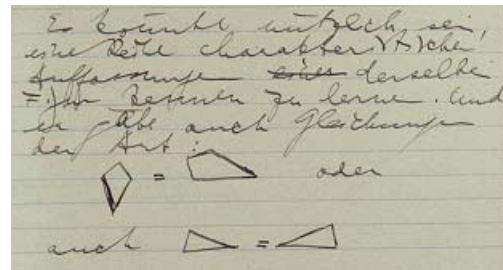 Es könnte nützlich sein,
eine Reihe charakteristischer
Auffassungen eines derselben
kennen zu lernen. Und
es gäbe auch Gleichungen
der Art:
= oder
auch =